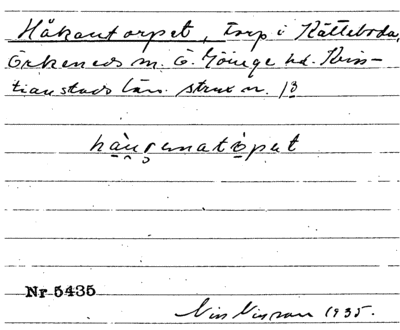 Håkantorpet, torp i Kätteboda,
Örkeneds sn. Ö. Göinge hd. Kris-
tianstads län. strax n. 13
Nr 5435
Nils Nilsson 1935.